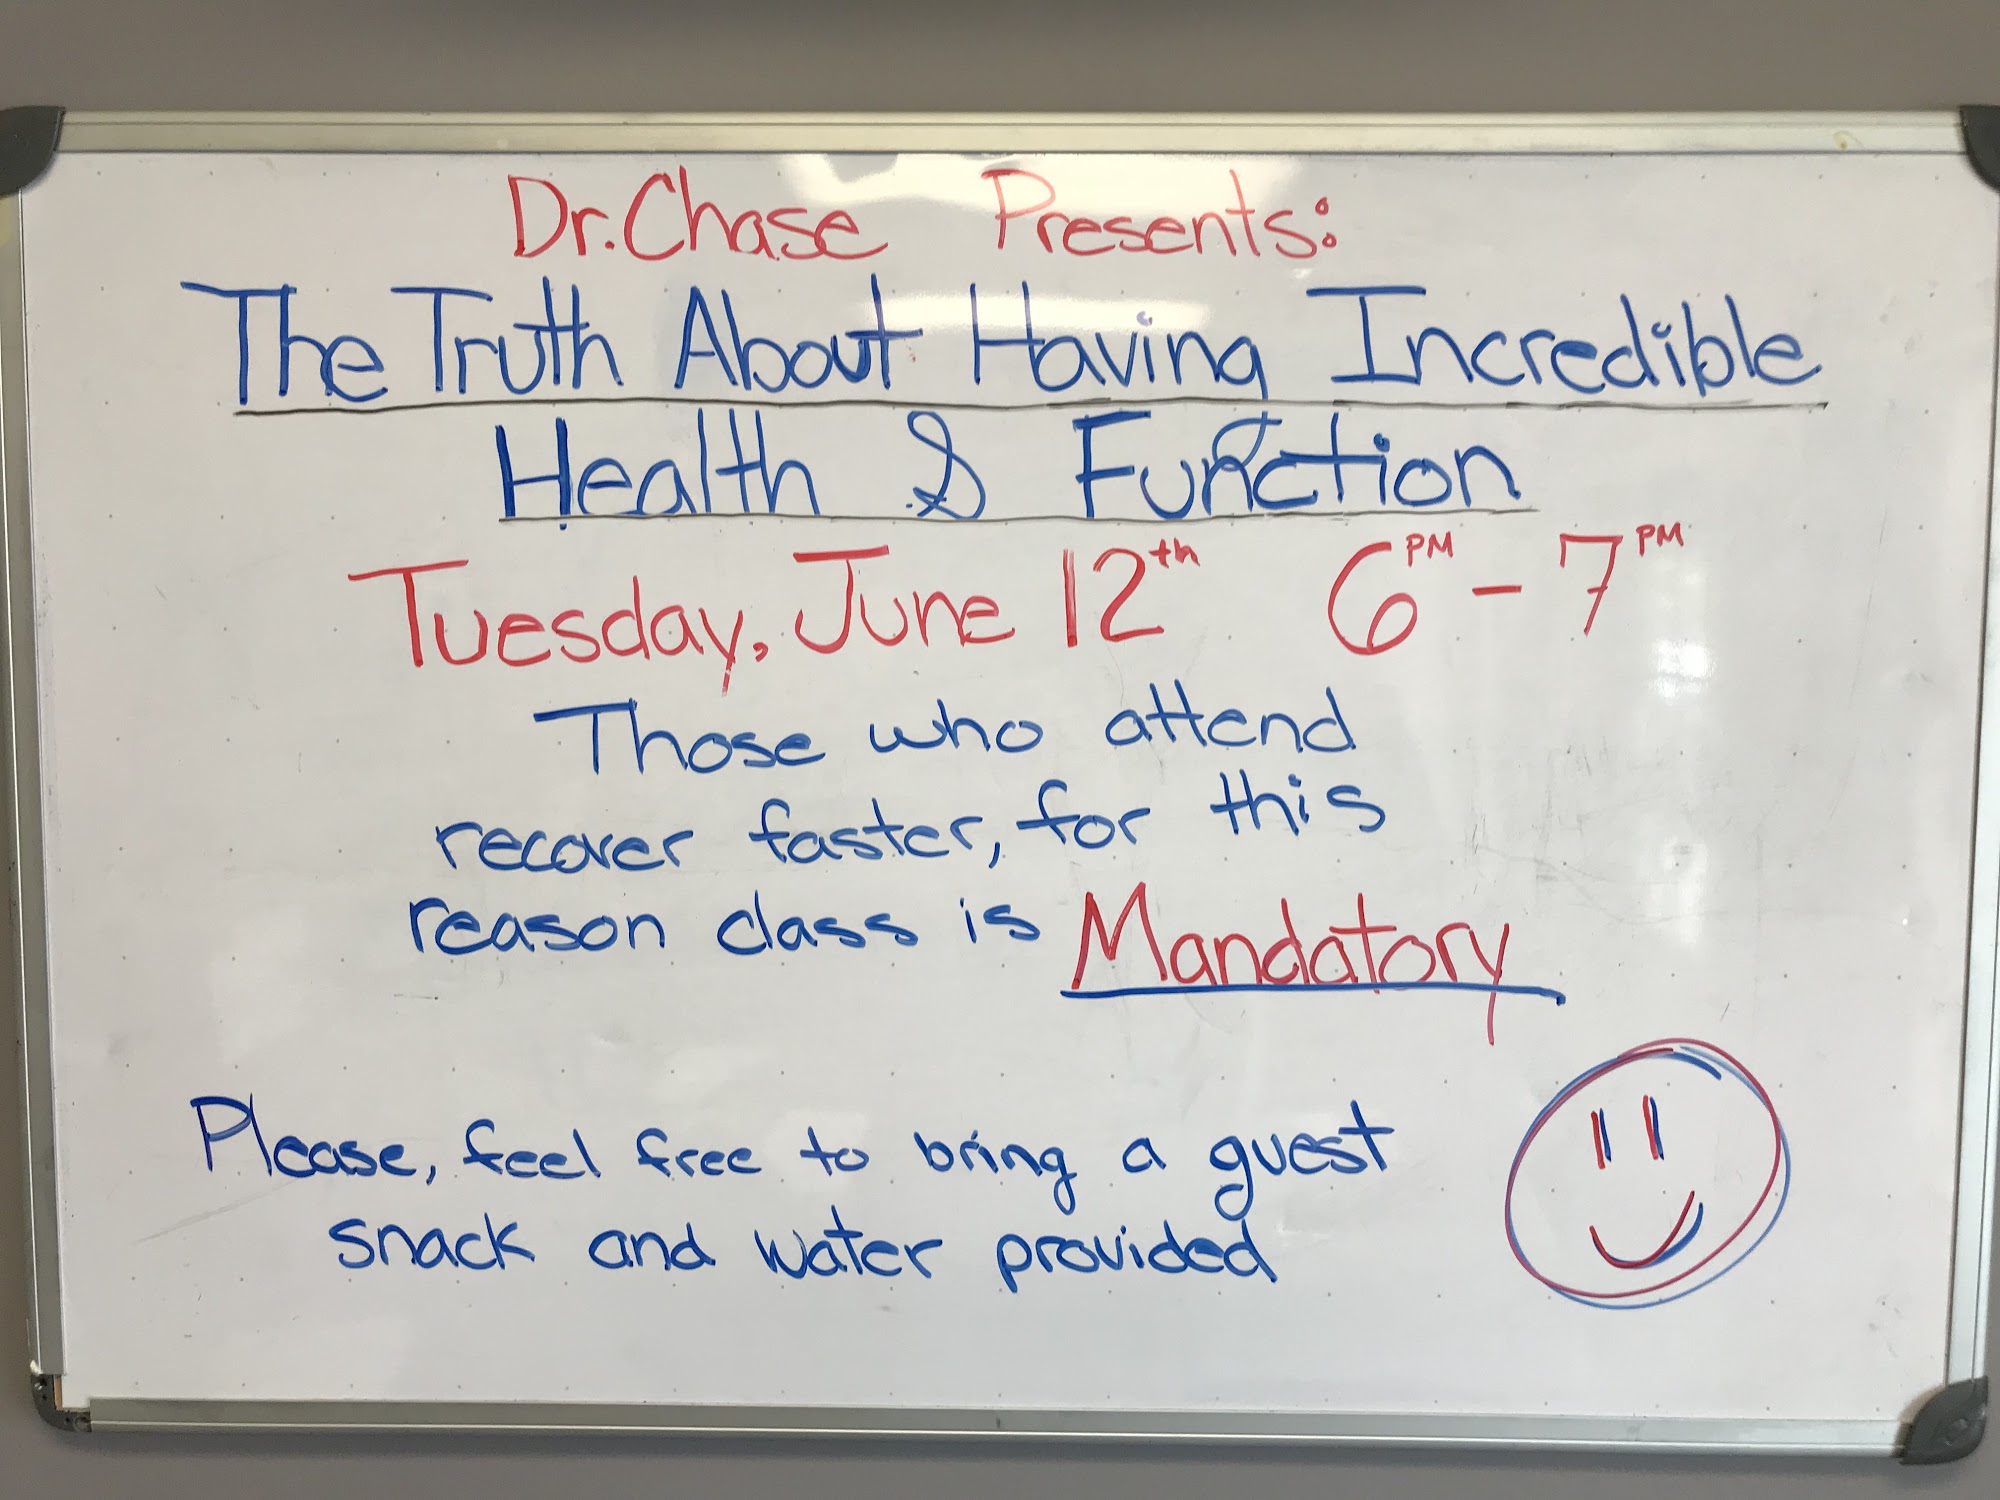 Dr. Chase Presents:
The Truth About Having Incredible
Health & Function
Tuesday, June 12th 6PM - 7PM
Those who attend
recover faster, for this
reason class is Mandatory
Please, feel free to bring a guest
snack and water provided